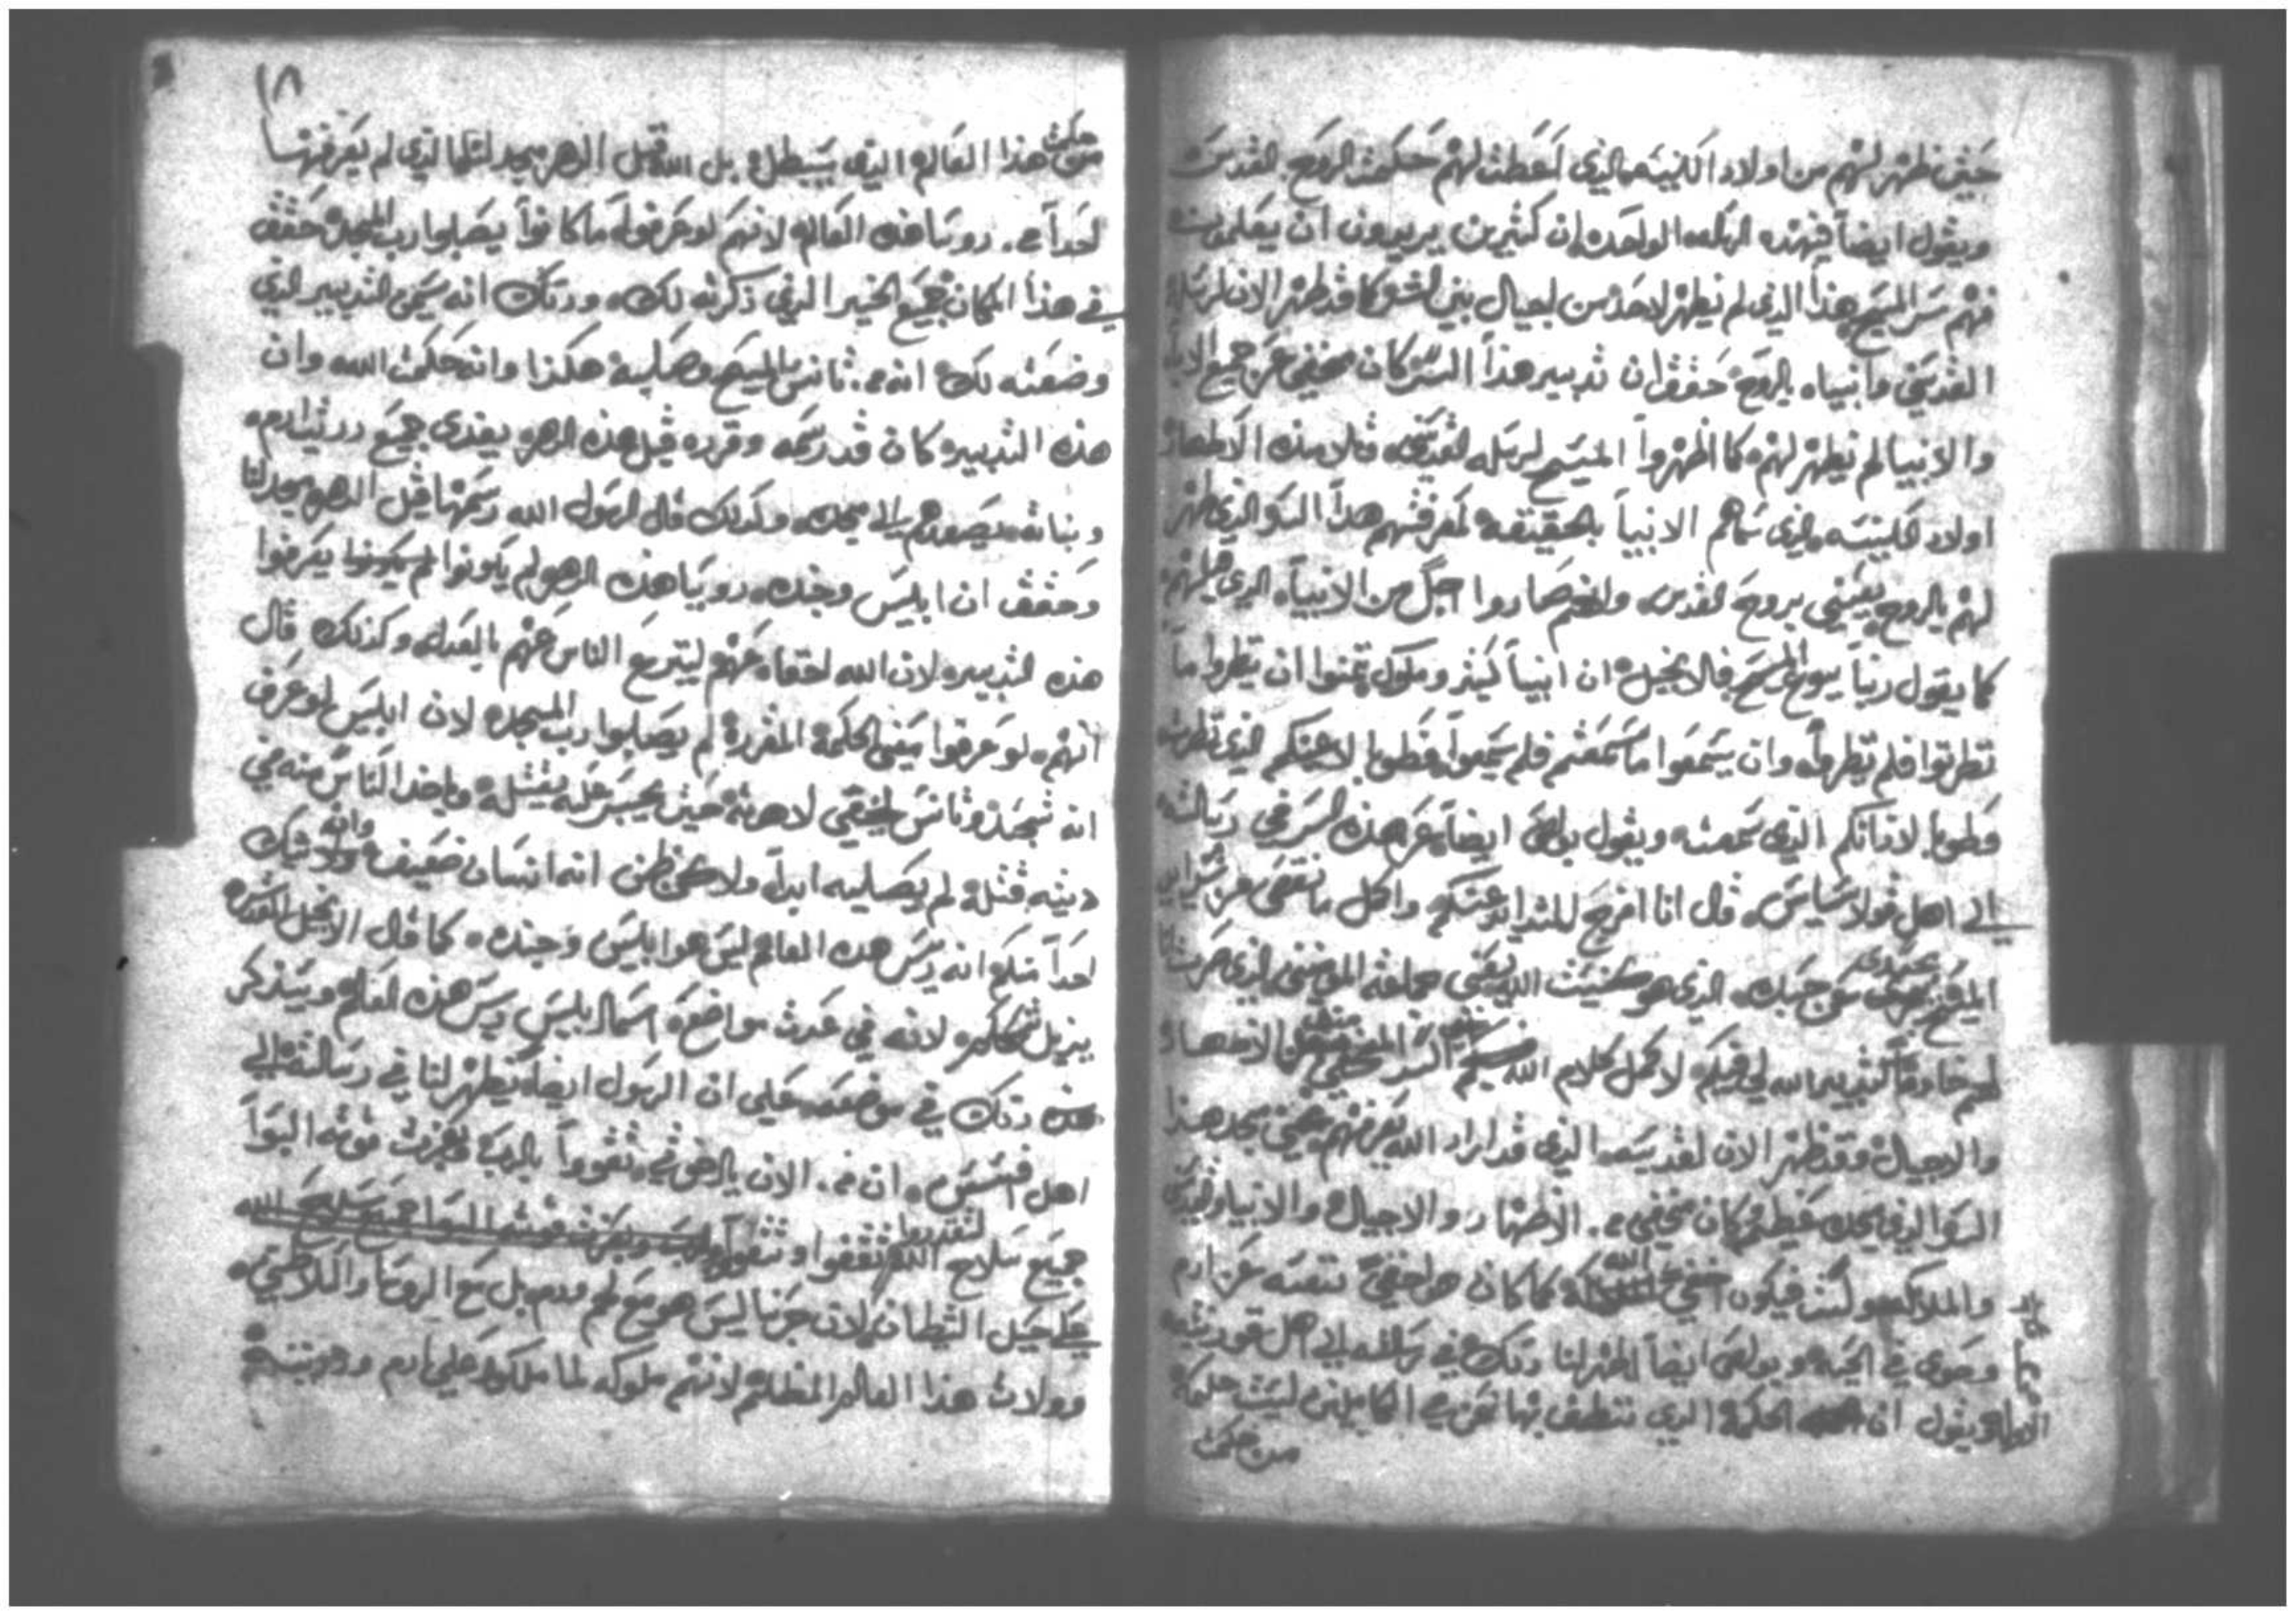 حين نظهر لهم من اولاد الكنيسه الذي اعطت لهم حكمت الروح القدس
ويقول ايضاً فهذه الواحده ان كثيرين يريدون ان يعلمون
فهم سر المسيح هذا الذي لم يظهر لاحد من اجيال بني البشر كما قد ظهر الان لرسله
القدسين وانبياه بالروح حقق ان تدبير هذا السر كان مخفي عن جميع الابا
والانبيا لم يظهر لهم كما اظهروا المسيح لرسله القدسين تلاميذه الاطهار
اولاد الكنيسه الذي سماهم الانبياً بالحقيقه لمعرفتهم هذا السر الذي ظهر
لهم بالروح يعني بروح القدس وانهم صاروا اجل من الانبياً الذي قبلهم
كما يقول ربنا يسوع المسيح في الانجيل ان انبياً كثير وملوك تمنوا ان ينظروا ما
نظرتوا فلم ينظروه وان يسمعوا ما سمعتم فلم يسمعوا فطوبا لاعينكم الذي نظرت
وطوبا لاذانكم الذي سمعت ويقول بولص ايضاً عن هذه السر في رسالته
الي اهل قولاسايس قال انا افرح للشدايد عنكم واكمل ما نقص من شدايد
المسيح بجسدي عن جسده الذي هو كنيست الله يعني جماعة المومنين الذي صرت انا
لهم خادماً كتدبير الله لي فيكم لاكمل كلام الله السر المخفي من الادهار
والاجيال وقد ظهر الان لقديسه الذي قد اراد الله يعرفهم غني مجد هذا
السر الذي كان مخفي من الادهار والاجيال والانبيا
والملايكه فيكون اخفي الله كما كان هو اخفي نفسه عن ادم
وحوي في الحيه وبولص ايضاً اظهر لنا ذلك في رسالته الي اهل قورنتيه
الاوله ويقول ان الحكمة الذي ننطق بها نحن في الكاملين ليست حكمة
من حكمت
١٨
من حكمت هذا العالم الذي يبطل بل الله قبل الدهر مجد لنا الذي لم يعرفها
احداً من روسا هذه العالم لانهم لو عرفوه ما كانوا يصلبوا رب المجد حقق
في هذا المكان جميع الخير الذي ذكرته لك وذلك انه سمي التدبير الذي
وضعته لك انه من تانس المسيح وصلبه هكذا وانه حكمت الله وان
هذه التدبير كان قد رسمه وقرره قبل هذه الدهر يفدي جميع ذريت ادم
وبناته يصعدهم الي مجده وكذلك قال الرسول الله رسمها قبل الدهر مجد لنا
وحقق ان ابليس وجنده روسا هذه الدهر لم يكونوا يعرفوا
هذه التدبير لان الله اخفاه عنهم لينزع الناس عنهم بالعدل وكذلك قال
انهم لو عرفوا يعني الحكمة المقررة لم يصلبوا رب المجد لان ابليس لو عرف
انه تجسد وتانس ليخفي لاهوته حين يجسر عليه يقتله وياخد الناس منه في
ديته قتله لم يصلبه ابداً ولاكن ظن انه انسان ضعيف وانه ولا يشك
احداً منكم انه ريس هذه العالم ليس هو ابليس وجنده كما قال الانجيل المقدس
لانه في عدت مواضع اسما ابليس ريس هذه العالم وسنذكر
ذلك في موضعه علي ان الرسول ايضاً يظهر لنا في رسالته الي
اهل افسس ان من الان يااخوتي تقووا بالرب وبعزت قوته البسوا
جميع سلاح الله لتقدروا تقفوا
علي حيل الشيطان لان حربنا ليس هو مع لحم ودم بل مع الروسا والسلاطين
وولات هذا العالم المظلم لانهم ملوكه لما ملكوا علي ادم وذريته